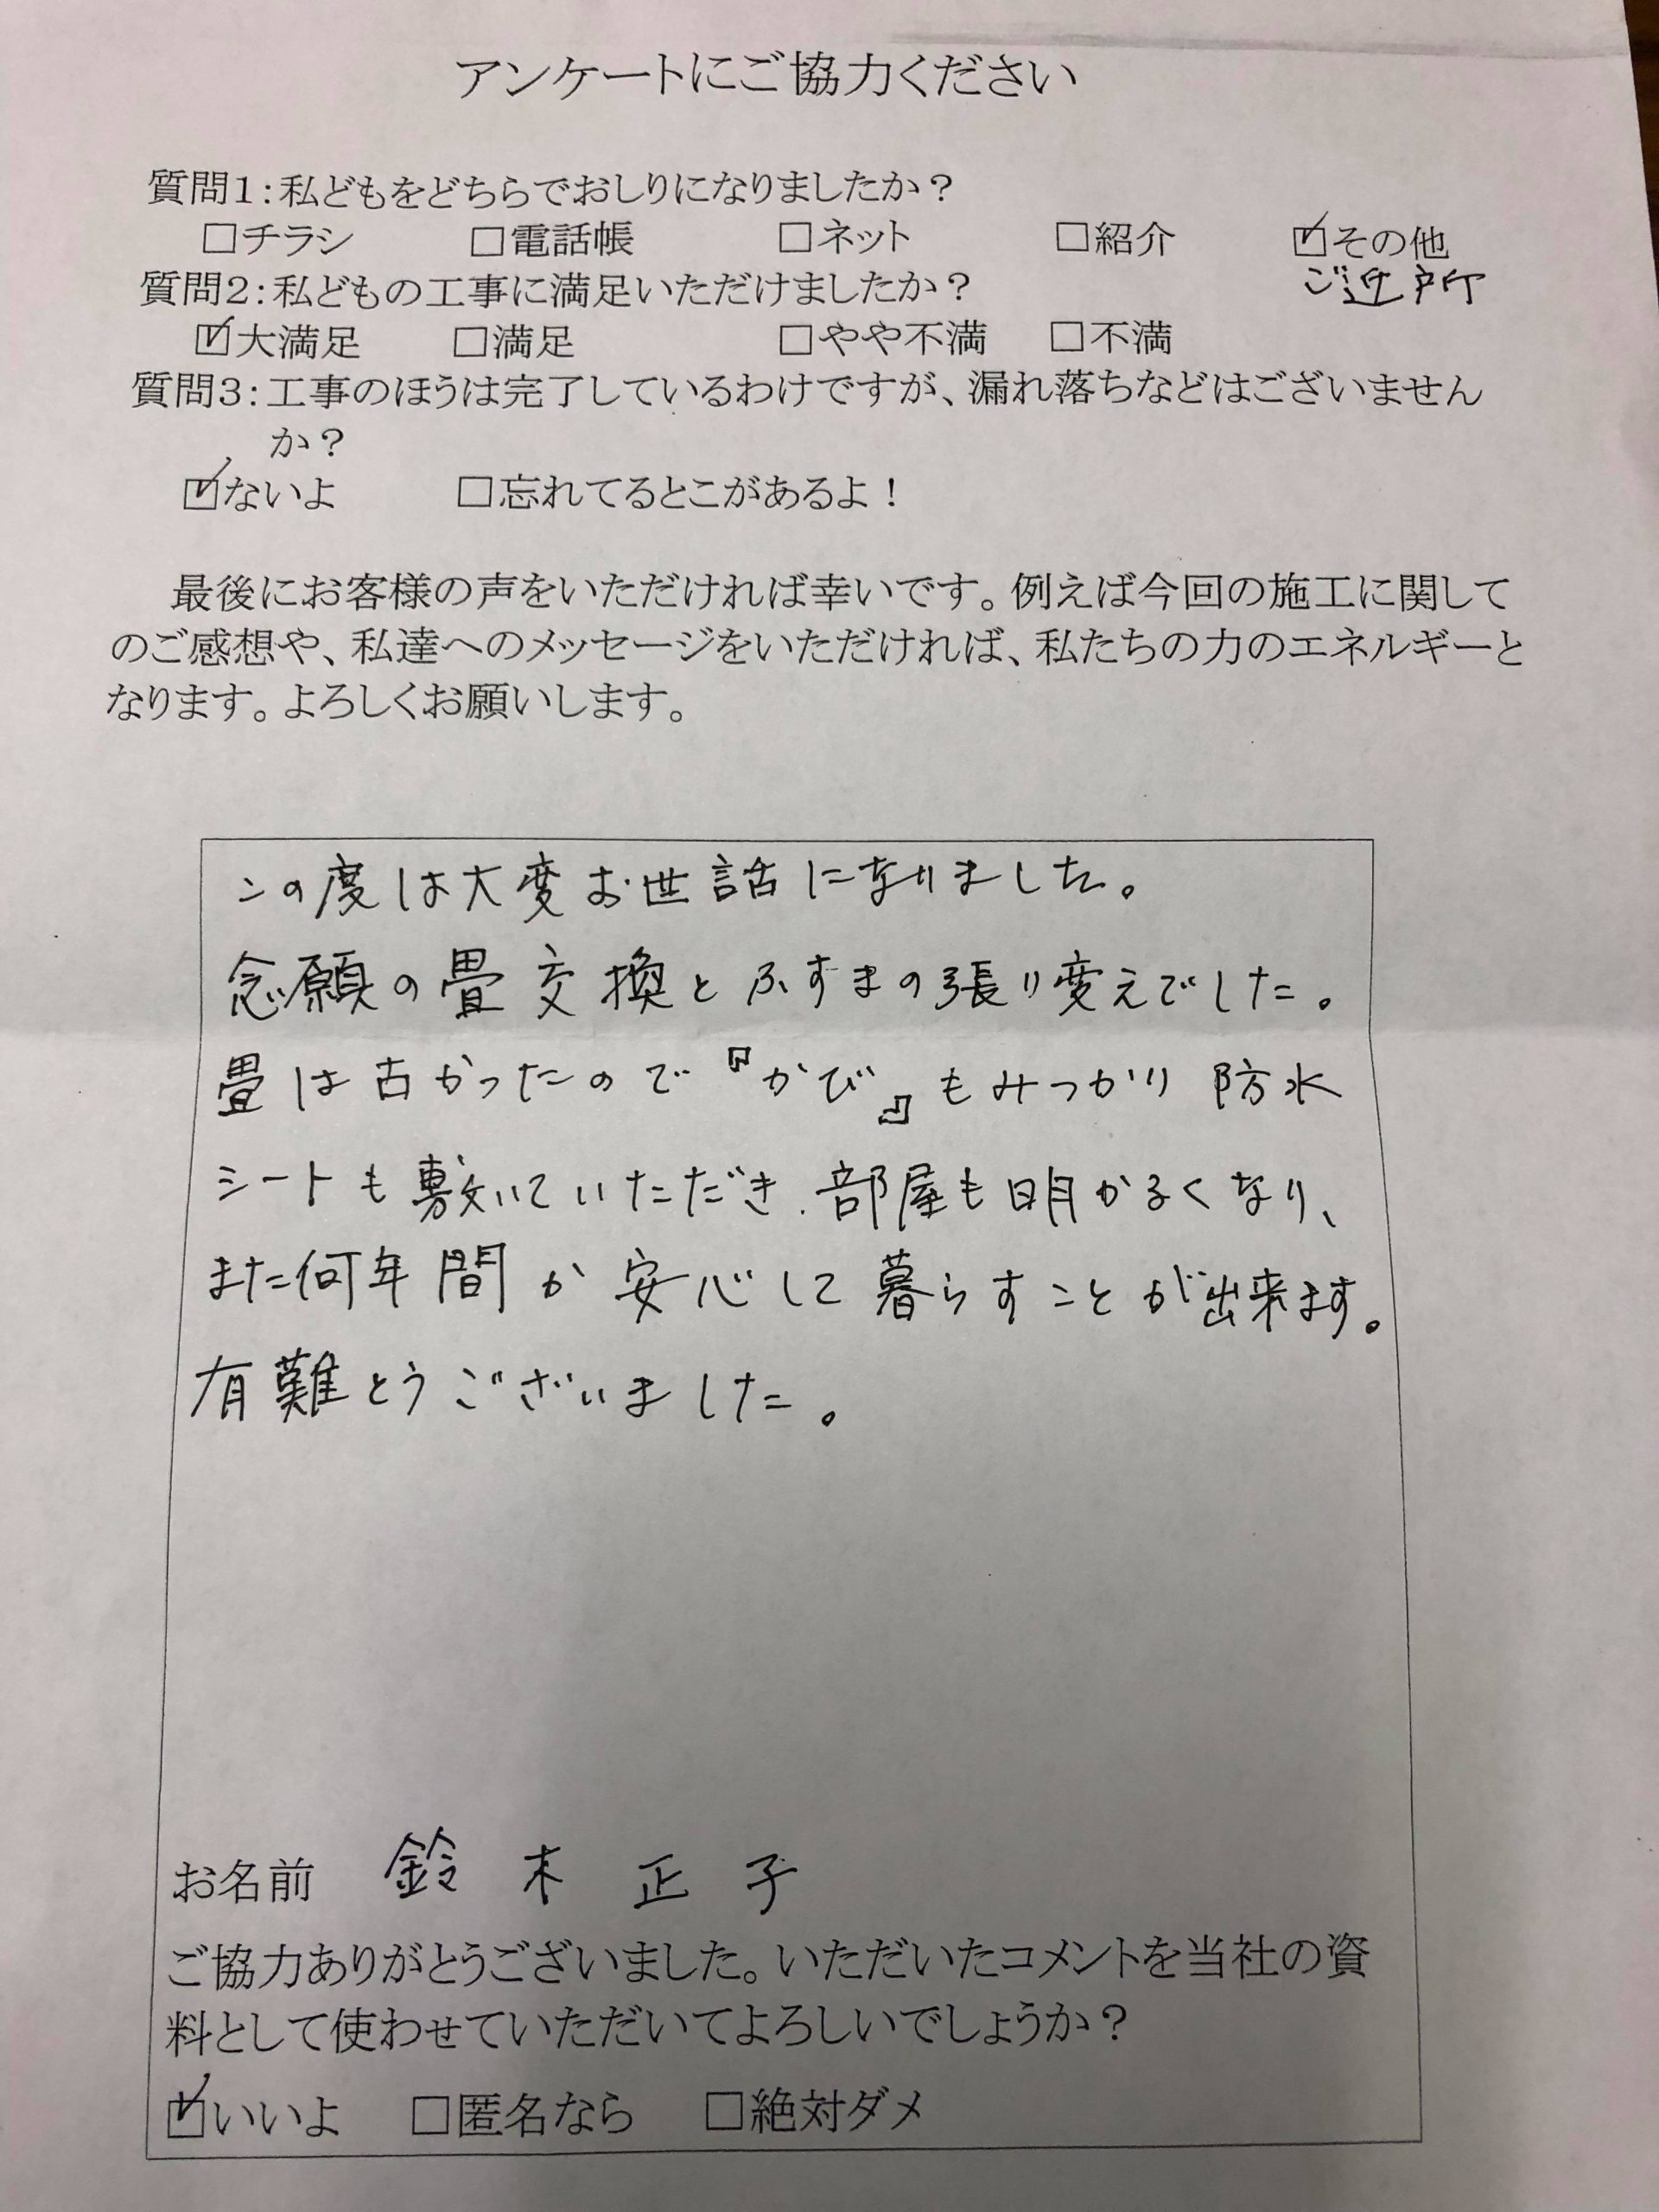 アンケートにご協力ください
質問1:私どもをどちらでおしりになりましたか？
□チラシ □電話帳 □ネット □紹介 ☑その他
ご近所
質問2:私どもの工事に満足いただけましたか？
☑大満足 □満足 □やや不満 □不満
質問3:工事のほうは完了しているわけですが、漏れ落ちなどはございません
か？
☑ないよ □忘れてるとこがあるよ！
最後にお客様の声をいただければ幸いです。例えば今回の施工に関して
のご感想や、私達へのメッセージをいただければ、私たちの力のエネルギーと
なります。よろしくお願いします。
この度は大変お世話になりました。
念願の畳交換とふすまの張り変えでした。
畳は古かったので『かび』もみつかり防水
シートも敷いていただき、部屋も明かるくなり、
また何年間か安心して暮らすことが出来ます。
有難とうございました。
お名前 鈴木正子
ご協力ありがとうございました。いただいたコメントを当社の資
料として使わせていただいてよろしいでしょうか？
☑いいよ □匿名なら □絶対ダメ